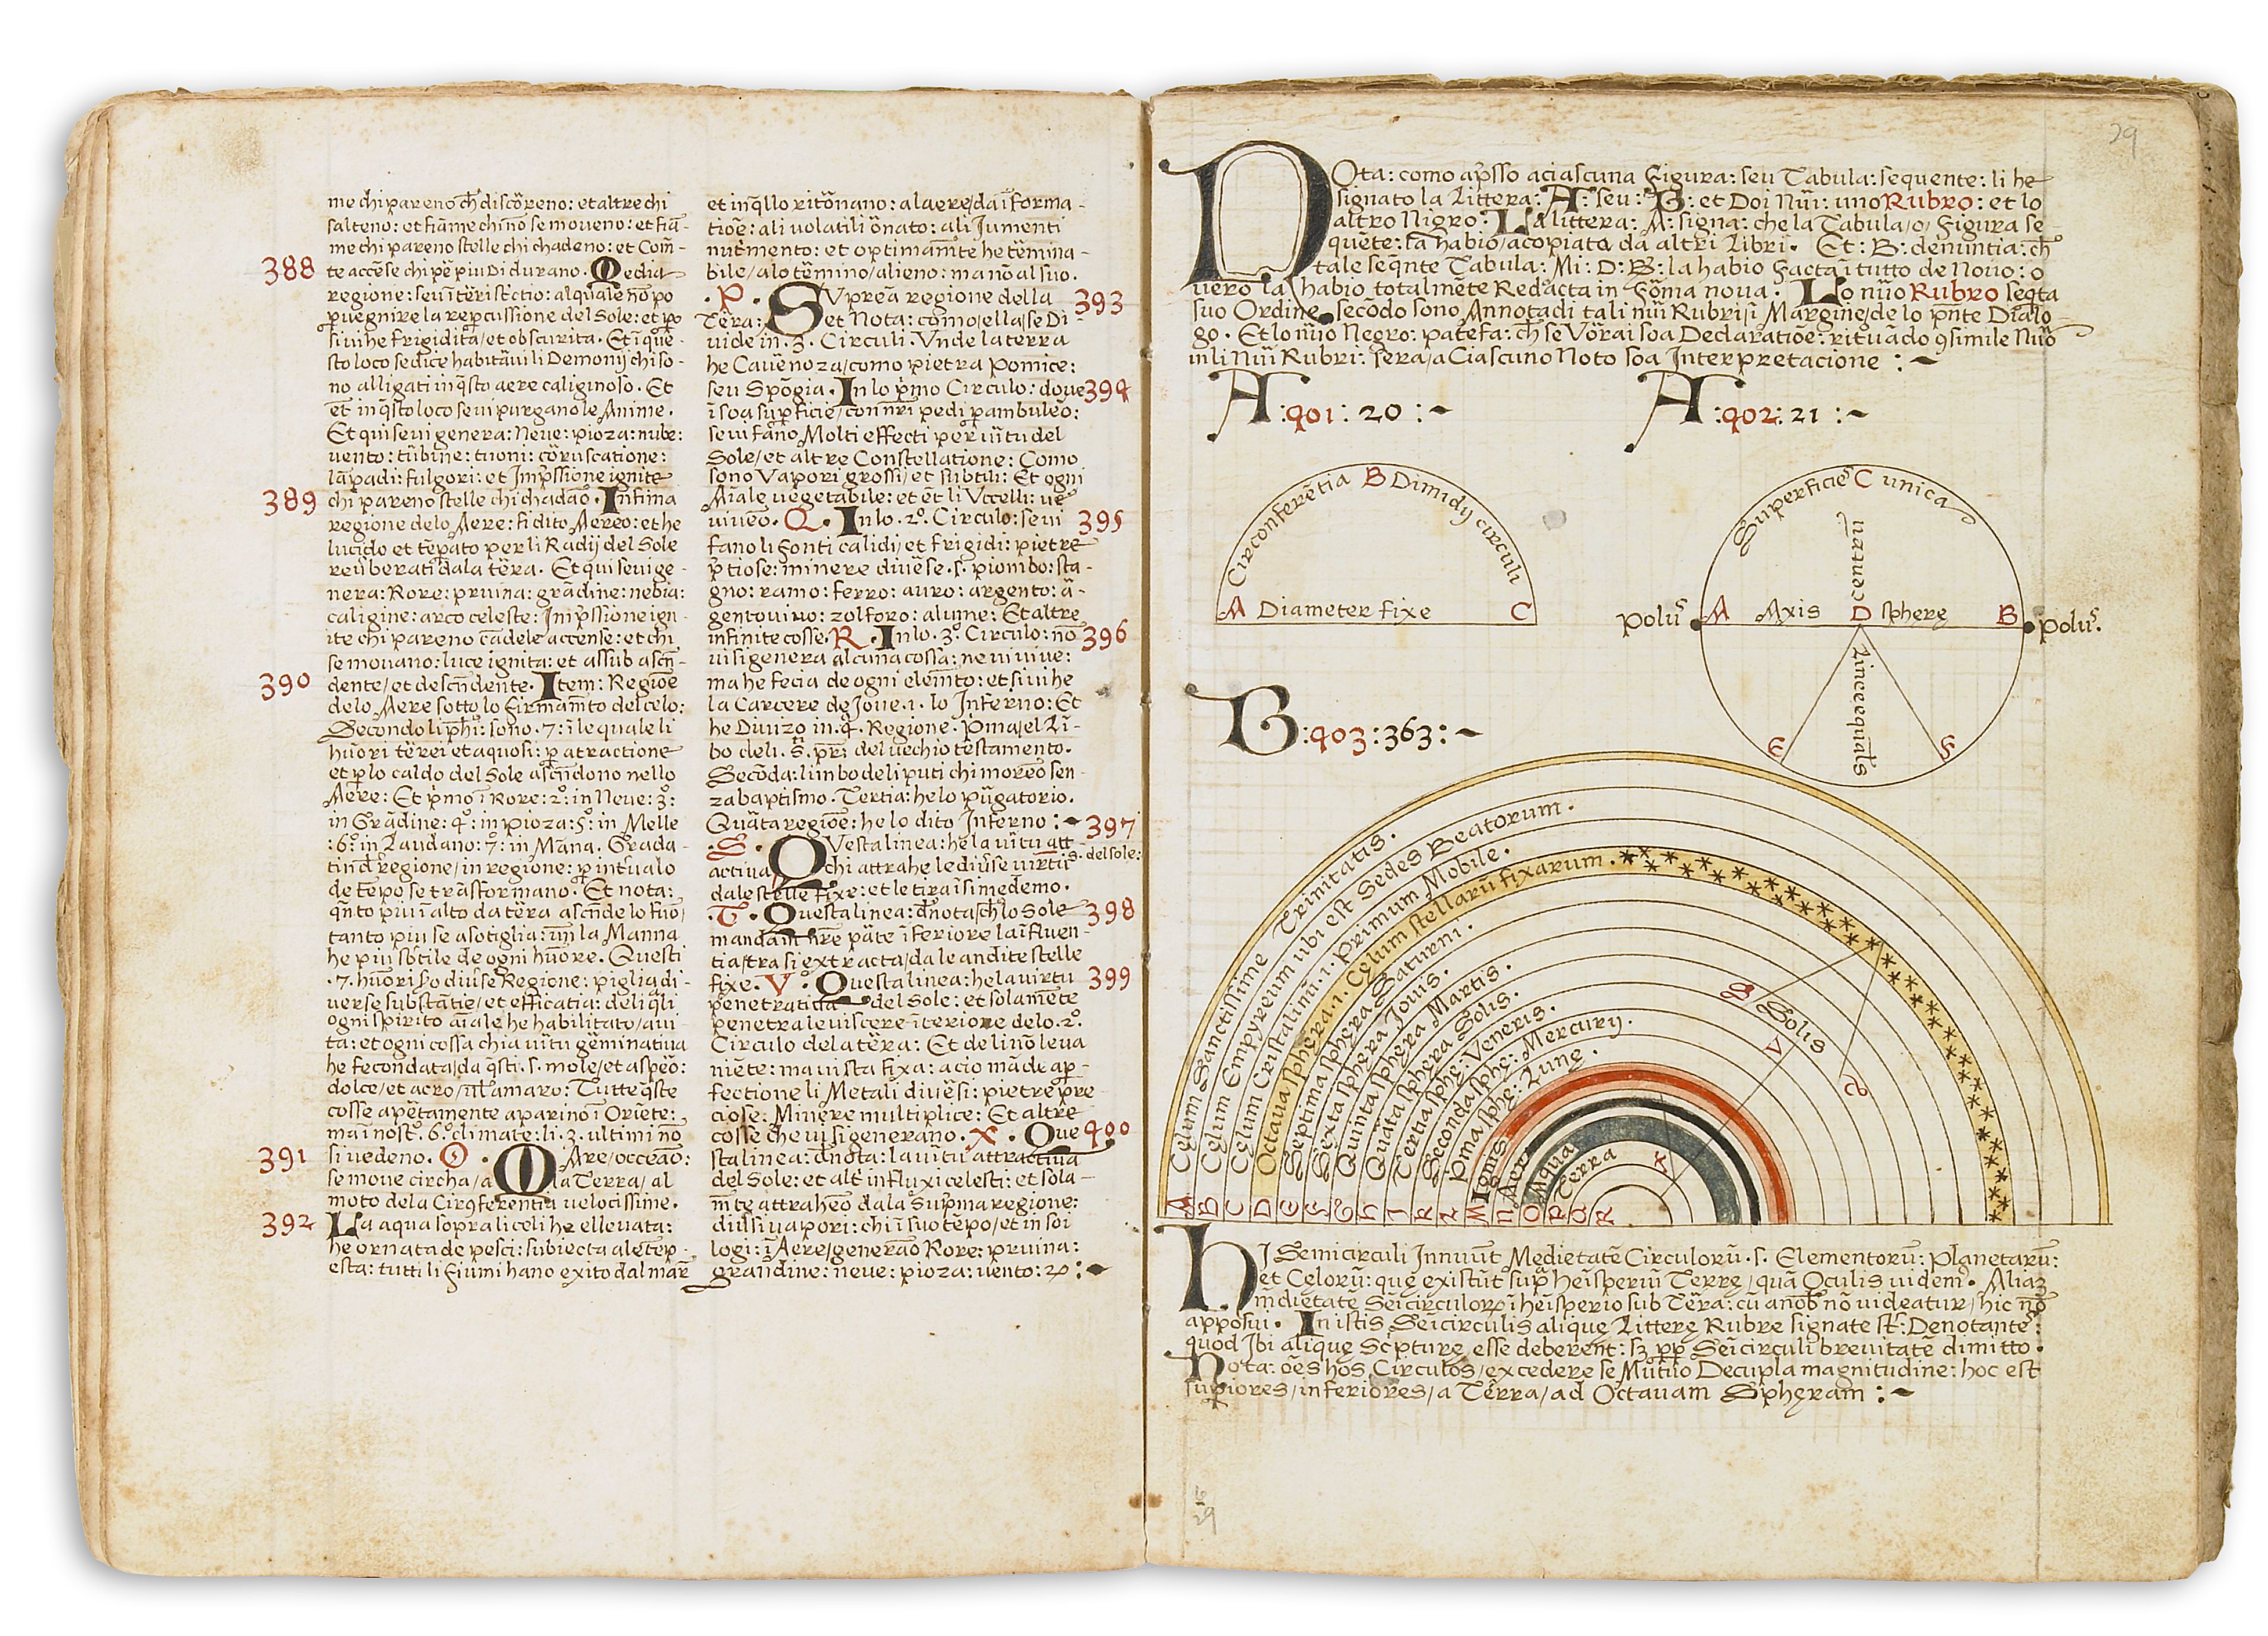 me chi pareno ch̄ discōreno: et altre chi
salteno: et fiāme chi nō se moveno: et fiā-
me chi pareno stelle chi chadeno: et Com̄-
388 te accēse chi p̄e piu Di durano. Media
regione: seu īterist̄ctio: al quale nō po
p̱uegnire la rep̱cussione del Sole: et p̱o
si vi he Frigidita/et obscurita. Et ī que-
sto loco se dice habitāu li Demonij chi so-
no alligati in q̄sto aere caliginoso. Et
ēt in q̄sto loco se vi purgano le Anime.
Et qui se vi genera: Neve: pioza: nube:
vento: tūbine: tuoni: cōruscatione:
lāpadi: fulgori: et Imp̄ssione ignite
389 chi pareno stelle chi chadaō. Infima
regione delo Aere: si dito Aereo: et he
lucido et tēpato per li Radij del Sole
reūberati dala tēra. Et qui se vi ge-
nera: Rore: pruina: grādine: nebia:
caligine: arco celeste: Imp̄ssione ign-
ite chi pareno cādele accense: et chi
se mouano: luce ignita: et assub ascn̄-
390 dente/et descn̄dente. Item: Regioē
delo Aere sotto lo Firmam̄to del celo:
Secondo li ph̄i: sono .7: ī le quale li
hūori tērei et aquosi: p̱ atractione
et p̱ lo caldo del Sole ascn̄dono nello
Aere: Et p̄mo ī Rore: 2º: in Neve: 3º:
in Grādine: 4º: in pioza: 5º: in Melle
:6º: in Laudano: 7º: in Māna. Grada-
tim d̄ regione/in regione: p̱ int̄ualo
de tēpo se trāsformano. Et nota:
q̄nto piu ī alto da tēra ascn̄de lo hūo/
tanto piu se asotiglia: un̄ la Manna
he piu sb̄tile de ogni hūore. Questi
.7. hūori so diūse Regione: piglia di-
verse substātie/et efficatia: deli q̄li
ogni spirito aīale he habilitato/a vi-
ta: et ogni cossa chi a vītu gēminativa
he fecondata/da q̄sti .s. mole/et aspēo:
dolce/et acro/n̄l amaro: Tutte q̄ste
cosse apētamente aparinō ī Oriēte:
ma ī nost̄. 6º. climate: li .3. ultimi nō
391 si vedeno. O. MAre/occeaō:
se move circha/a la Terra/al
moto dela Circ̄ferentia velocissime.
392 La aqua sopra li celi he ellevata:
he ornata de pesci: subiecta ale tēp-
esta: tutti li Fiumi hano exito dal mar̄
et in q̄llo ritōnano: ala aere/da ī forma-
tioē: ali volatili ōnato: ali Jumenti
nut̄mento: et optimam̄te he tēmina-
bile/alo tēmino/alieno: ma nō al suo.
.P. SVprēa regione della 393
Tēra: et Nota: como/ella/se Di-
vide in .3. Circuli. Vnde la terra
he Cavēnoza/como pietra Pomice:
seu Spōgia. In lo p̄mo Circulo: dove 394
ī soa sup̱ficie/con nr̄i pedi p̱ambuleō:
se vi fano Molti effecti per vītu del
Sole/et altre Constellatione: Como
sono Vapori grossi/et subtili: Et ogni
Aīale vegetabile: et ēt li Vccelli: ve
viveō. Q. In lo .2º. Circulo: se vi 395
fano li fonti calidi/et frigidi: pietre
p̄tiose: minere divēse .s. piombo: sta-
gno: ramo: ferro: auro: argento: ā-
gentovivo: zolforo: alume: Et altre
infinite cosse. R. In lo .3º. Circulo: nō 396
vi si genera alcuna cossa: ne vi vive:
ma he fecia de ogni elem̄to: et si vi he
la Carcere de Joue .i. lo Inferno: Et
he Divizo in .4. Regione. p̄ma/el Li-
bo deli .S. pr̄i del vechio testamento.
Secōda: limbo deli puti chi moreō sen-
za baptismo. Tertia: he lo pūgatorio.
Quāta regioē: he lo dito Inferno :~ 397
.S. QVesta linea: he la vītu att-
activa chi attrahe le divīse virtūs .del sole:
dale stelle fixe: et le tira ī si medemo.
.T. Questa linea: d̄nota/ch̄ lo Sole 398
manda ī nr̄e pāte īferiore la īfluen-
tia/tra si extracta/da le andite stelle
fixe. V. Questa linea: he la virtu 399
penetrativa del Sole: et solamēte
penetra le viscere īteriore delo .2º.
Circulo dela tēra: Et de li nō leva
niēte: ma vi sta fixa: acio māde ap-
fectione li Metali divēsi: pietre pre
ciose: Minere multiplice: Et altre
cosse che vi si generano. X. Que 400
sta linea: d̄nota: la vītu attractiva
del Sole: et alt̄ influxi celesti: et sola-
m̄te attraheō dala Sup̄ma regione:
diūsi vapori: chi ī suo tēpo/et in soi
logi: ī Aere/generaō Rore: pruina:
grandine: neve: pioza: vento: 2º:~
29
NOta: como ap̄sso a ciascuna Figura: seu Tabula: sequente: li he
signato la Littera: A: seu: B: et Doi Nūi: uno Rubro: et lo
altro Nigro: La littera: A: signa: che la Tabula/o/Figura se-
quēte: la habio/acopiata da altri Libri. Et: B: denuntia: ch̄
tale seq̄nte Tabula: Mi: D: B: la habio Facta ī tutto de Novo: o
vero la habio totalmēte Redācta in fōma nova. Lo nūo Rubro seq̄ta
suo Ordine, secōdo sono Annotadi tali nūi Rubri/ī Margine/de lo p̄nte Dialo-
go. Et lo nūo Negro: patefa: ch̄ se Vōrai soa Declaratioē: rituādo ꝯsimile Nūo
in li Nūi Rubri: sera/a Ciascuno Noto soa Interpretacione :~
A :401: 20 :~
A :402: 21 :~
Circonferētia B Dimidij circuli
A Diameter fixe C
Superficie C unica
centrum
polus A Axis D sphere B polus.
Linee equales
E F
B :403:363:~
Celum Sanctissime Trinitatis.
Celum Empyreum ubi est Sedes Beatorum.
Celum Cristalinū .i. Primum Mobile.
Octava sphera .i. Celum stellarū fixarum.
Septima sphera Saturni.
Sexta sphera Jouis.
Quinta sphera Martis.
Quāta sphera Solis.
Tertia sphe: Veneris.
Seconda sphe: Mercurij.
Pma sphe: Lune.
Ignis
Aer
Aqua
Terra
S Solis
V
X
A B C D E F G H I K L M N O P Q R
HI Semicirculi Innuūt Medietatē Circulorū .s. Elementorū: Planetarū:
et Celorū: que existūt sup̱ heīsperiū Terre/quā Oculis videm9. Aliaꝫ
m̄dietatē Seīcirculoꝝ ī heīsperio sub Tēra: cū a nob̄ nō videatur/hic nō
apposui. In istis Seīcirculis alique Littere Rubre signate st̄: Denotante:
quod Ibi alique Sc̄pture esse deberent: sꝫ pp̱ Seīcirculi brevitatē dimitto.
Nota: oēs hos Circulos/excedere se Mūtuo Decupla magnitudine: hoc est
sup̱iores/inferiores/a Tērra/ad Octavam Spheram :~
29